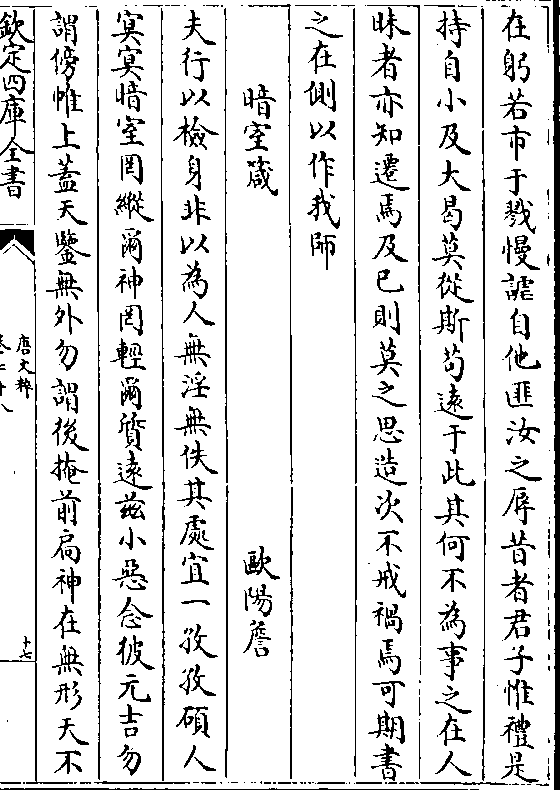 在躬若市于戮慢謔自他匪汝之辱昔者君子惟禮是
持自小及大曷莫從斯苟遠于此其何不為事之在人
昧者亦知遷焉及己則莫之思造次不戒禍焉可期書
之在側以作我師
暗室箴 歐陽詹
夫行以檢身非以為人無淫無佚其處宜一孜孜碩人
冥冥暗室罔縱爾神罔輕爾質遠茲小惡念彼元吉勿
謂傍帷上蓋天鑒無外勿謂後掩前扃神在無形天不
欽定四庫全書
唐文粹
卷七十八
十七